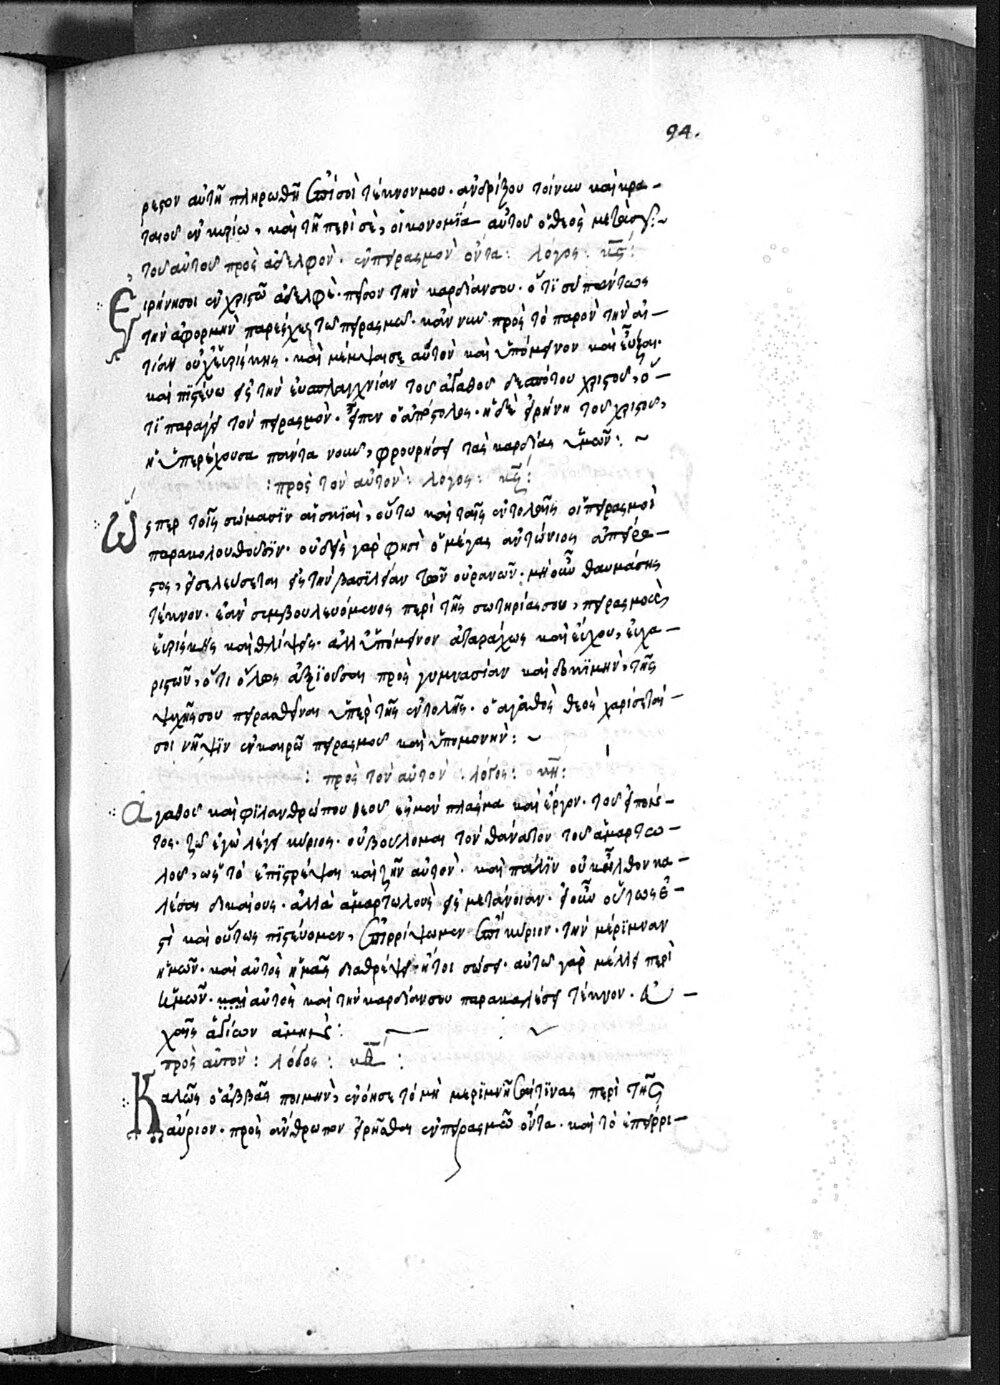 94.
ρεσον αὐτῆ πληρωθῆ ἐπὶ σοὶ τέκνον μου· ἀνδρίζου τοίνυν καὶ κρα-
ταιοῦ ἐν κυρίω, καὶ τῆ περὶ σὲ, οἰκονομία αὐτοῦ ὁ θεὸς μετὰ σοῦ:~
τοῦ αὐτοῦ πρὸς ἀδελφὸν· ἐν πειρασμὸν ὄντα: λόγος: κς:
Εἰρήνη σοι ἐν χριστῶ ἀδελφὲ· πεῖσον τὴν καρδίαν σου· ὅτι σὺ πάντως
τὴν ἀφορμὴν παρέσχες τῶ πειρασμῶ· κἂν νῦν πρὸς τὸ παρὸν τὴν αἰ-
τίαν οὐχ εὑρίσκης· καὶ μέμψαι σεαυτὸν καὶ ὑπόμεινον καὶ εὖξαι·
καὶ πιστεύω εἰς τὴν εὐσπλαγχνίαν τοῦ ἀγαθοῦ δεσπότου χριστοῦ, ὅ-
τι παράγει τὸν πειρασμὸν· εἶπεν ὁ ἀπόστολος· ἡ δὲ εἰρήνη τοῦ χριστοῦ,
ἡ ὑπερέχουσα πάντα νοῦν, φρουρήσει τὰς καρδίας ὑμῶν: ~
: πρὸς τὸν αὐτὸν: λόγος: κζ:
Ὥσπερ τοῖς σώμασιν αἱ σκιαὶ, οὕτω καὶ ταῖς ἐντολαῖς οἱ πειρασμοὶ
παρακολουθοῦσιν· οὐδεὶς γάρ φησὶ ὁ μέγας ἀντώνιος ἀπείρα-
στος, εἰσελεύσεται εἰς τὴν βασιλείαν τῶν οὐρανῶν· μὴ οὖν θαυμάσης
τέκνον· ἐὰν συμβουλευόμενος περὶ τῆς σωτηρίας σου, πειρασμοὺς
εὑρίσκης καὶ θλίψεις· ἀλλ' ὑπόμεινον ἀταράχως καὶ εὔχου, εὐχα-
ριστῶν, ὅτι ὅλως ἀξιοῦσαι πρὸς γυμνασίαν καὶ δοκιμὴν, τῆς
ψυχῆς σου πειρασθῆναι ὑπὲρ τῆς ἐντολῆς· ὁ ἀγαθὸς θεὸς χαρίσεταί
σοι νῆψιν ἐν καιρῶ πειρασμοῦ καὶ ὑπομονὴν: ~
: πρὸς τὸν αὐτὸν· λόγος: κη:
Ἀγαθοῦ καὶ φιλανθρώπου θεοῦ ἐσμὸν πλάσμα καὶ ἔργον· τοῦ εἰπόν-
τος· ζῶ ἐγὼ λέγει κύριος· οὐ βούλομαι τὸν θάνατον τοῦ ἁμαρτω-
λοῦ, ὡς τὸ ἐπιστρέψαι καὶ ζῆν αὐτὸν· καὶ πάλιν οὐκ ἦλθον κα-
λέσαι δικαίους· ἀλλὰ ἁμαρτωλοὺς εἰς μετάνοιαν· εἰ οὖν οὕτως ἐ-
στὶ καὶ οὕτως πιστεύομεν, ἐπιρρίψωμεν ἐπὶ κύριον· τὴν μέριμναν
ἡμῶν· καὶ αὐτὸς ἡμᾶς διαθρέψει· ἤτοι σώσει· αὐτῶ γὰρ μέλει περὶ
ἡμῶν· καὶ αὐτὸς καὶ τὴν καρδίαν σου παρακαλέσει τέκνον· εὐ-
χαῖς ἁγίων ἀμήν:
πρὸς αὐτὸν: λόγος: κθ:
Καλῶς ὁ ἀββᾶς ποιμὴν, ἐνόησε τὸ μὴ μεριμνῆσαί τινας περὶ τῆς
αὔριον· πρὸς ἄνθρωπον εἰρῆσθαι ἐν πειρασμῶ ὄντα· καὶ τὸ ἐπιρρί-